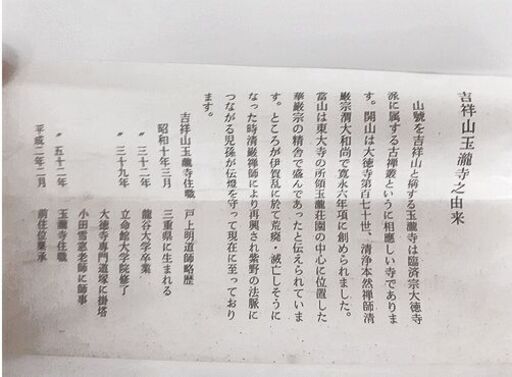 吉祥山玉瀧寺之由来
山號を吉祥山と稱する玉瀧寺は臨済宗大徳寺
派に属する古禅叢というに相應しい寺でありま
す。開山は大徳寺第百七十世、清浄本然禅師清
巖宗渭大和尚で寛永六年項に創められました。
當山は東大寺の所領玉瀧荘園の中心に位置した
華厳宗の精舎で盛んであったと伝えられていま
す。ところが伊賀乱に於て荒廃・滅亡しそうに
なった時清巖禅師により再興され紫野の法脈に
つながる児孫が伝燈を守って現在に至っており
ます。
吉祥山玉瀧寺住職 戸上明道師略歴
昭和十年三月 三重県に生まれる
〃 三十二年 龍谷大学卒業
〃 三十九年 立命館大学院修了
大徳寺専門道場に掛塔
小田雪窓老師に師事
〃 五十二年 玉瀧寺住職
平成二年二月 前住位稟承